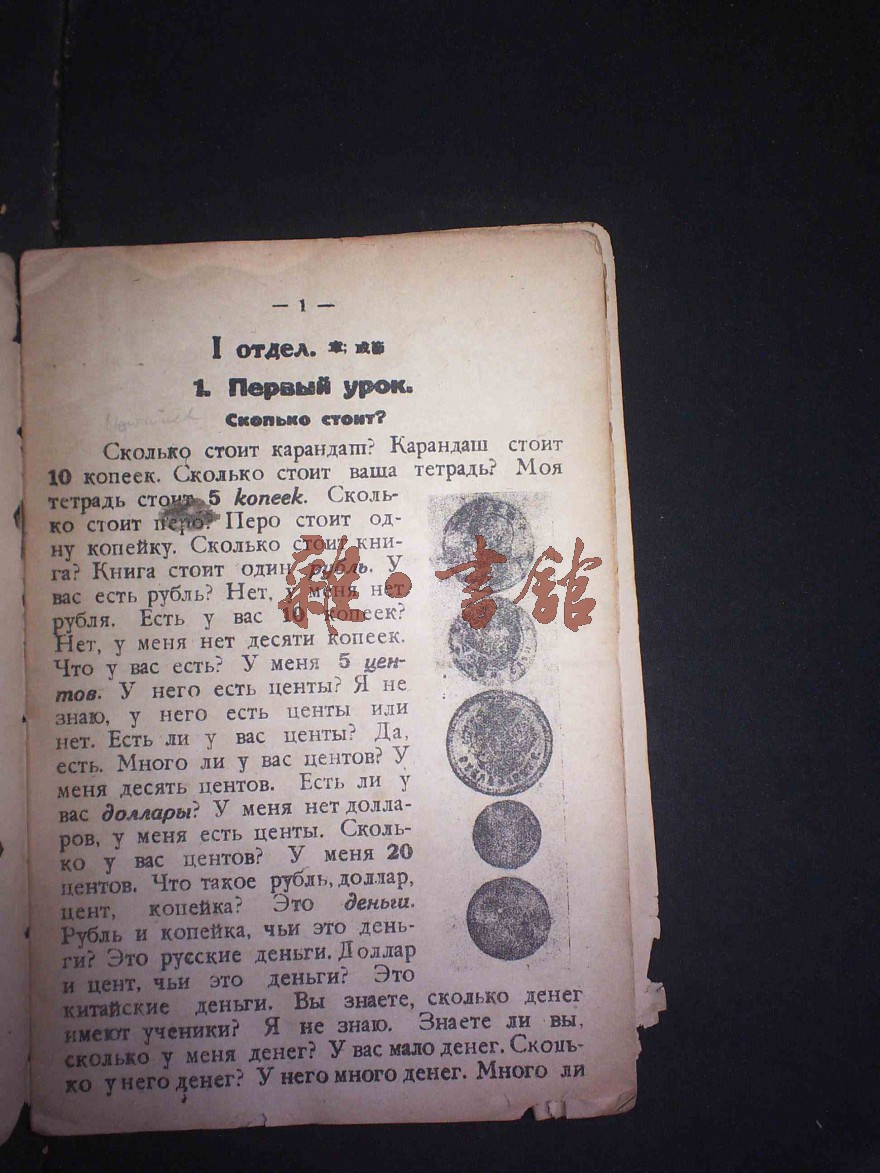 — 1 —
I отдел.
1. Первый урок.
Сколько стоит?
Сколько стоит карандаш? Карандаш стоит
10 копеек. Сколько стоит ваша тетрадь? Моя
тетрадь стоит 5 копеек. Сколь-
ко стоит перо? Перо стоит од-
ну копейку. Сколько стоит кни-
га? Книга стоит один рубль. У
вас есть рубль? Нет, у меня нет
рубля. Есть у вас 10 копеек?
Нет, у меня нет десяти копеек.
Что у вас есть? У меня 5 цен-
тов. У него есть центы? Я не
знаю, у него есть центы или
нет. Есть ли у вас центы? Да,
есть. Много ли у вас центов? У
меня десять центов. Есть ли у
вас доллары? У меня нет долла-
ров, у меня есть центы. Сколь-
ко у вас центов? У меня 20
центов. Что такое рубль, доллар,
цент, копейка? Это деньги.
Рубль и копейка, чьи это день-
ги? Это русские деньги. Доллар
и цент, чьи это деньги? Это
китайские деньги. Вы знаете, сколько денег
имеют ученики? Я не знаю. Знаете ли вы,
сколько у меня денег? У вас мало денег. Сколь-
ко у него денег? У него много денег. Много ли
雜·書館